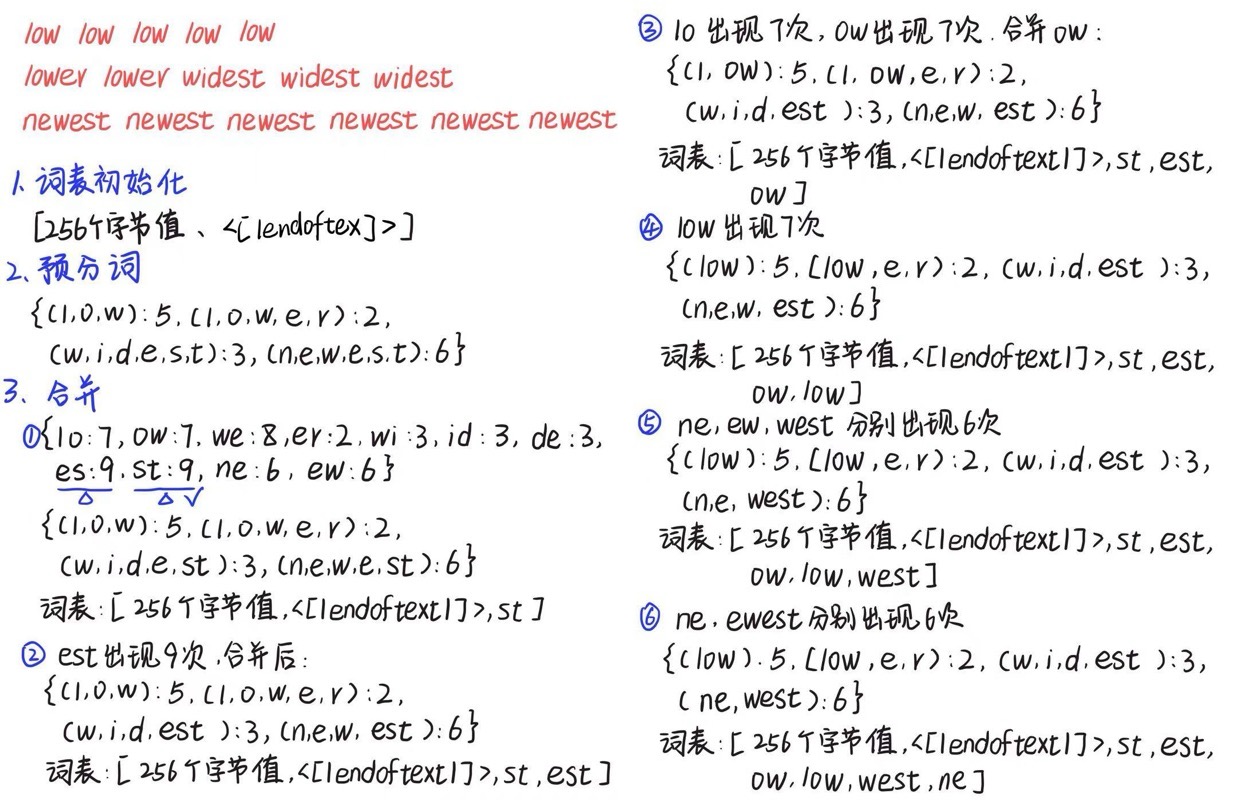 low low low low low
lower lower widest widest widest
newest newest newest newest newest newest
1. 词表初始化
[256个字节值、<[lendoftex]>]
2、预分词
{(l,o,w):5,(l,o,w,e,r):2,
(w,i,d,e,s,t):3,(n,e,w,e,s,t):6}
3、合并
①{lo:7,ow:7,we:8,er:2,wi:3,id:3,de:3,
es:9,st:9,ne:6,ew:6}
{(l,o,w):5,(l,o,w,e,r):2,
(w,i,d,e,st):3,(n,e,w,e,st):6}
词表:[256个字节值,<[lendoftextl]>,st]
② est出现9次,合并后:
{(l,o,w):5,(l,o,w,e,r):2,
(w,i,d,est):3,(n,e,w,est):6}
词表:[256个字节值,<[lendoftextl]>,st,est]
③ lo出现7次,ow出现7次.合并ow:
{(l,ow):5,(l,ow,e,r):2,
(w,i,d,est):3,(n,e,w,est):6}
词表:[256个字节值,<[lendoftextl]>,st,est,
ow]
④ low出现7次
{(low):5,[low,e,r):2,(w,i,d,est):3,
(n,e,w,est):6}
词表:[256个字节值,<[lendoftextl]>,st,est,
ow,low]
⑤ ne,ew,west 分别出现6次
{(low):5,[low,e,r):2,(w,i,d,est):3,
(n,e,west):6}
词表:[256个字节值,<[lendoftextl]>,st,est,
ow,low,west]
⑥ ne,ewest分别出现6次
{(low).5,[low,e,r):2,(w,i,d,est):3,
(ne,west):6}
词表:[256个字节值,<[lendoftextl]>,st,est,
ow,low,west,ne]